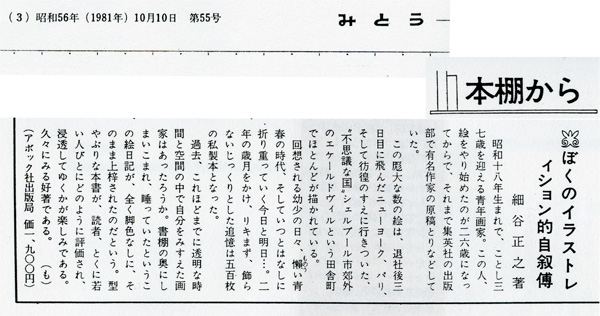 (3) 昭和56年(1981年)10月10日 第55号
みとう
本棚から
ぼくのイラストレ
イション的自叙傳
細谷正之著
昭和十八年生まれで、ことし三
七歳を迎える青年画家。この人、
絵をやり始めたのが二六歳になっ
てからで、それまで集英社の出版
部で有名作家の原稿とりなどして
いた。
この厖大な数の絵は、退社後三
日目に飛んだニューヨーク、パリ、
そして彷徨のすえに行きついた、
"不思議な国"シェルブール市郊外
のエケールドヴィルという田舎町
でほとんどが描かれている。
回想される幼少の日々、懶い青
ものう
春の時代、そしていつとはなしに
折り重っていく今日と明日…。二
年の歳月をかけ、リキまず、飾ら
ないじっくりとした追憶は五百枚
の私製本となった。
過去、これほどまでに透明な時
間と空間の中で自分をみすえた画
家はあったろうか。書棚の奥にし
まいこまれ、唾っていたというこ
の絵日記が、全く脚色なしに、そ
のまま上梓されたのだという。型
やぶりな本書が、読者、とくに若
い人びとにどのように評価され、
浸透してゆくかが楽しみである。
久々にみる好著である。 (も)
(アボック社出版局 価一、九〇〇円)